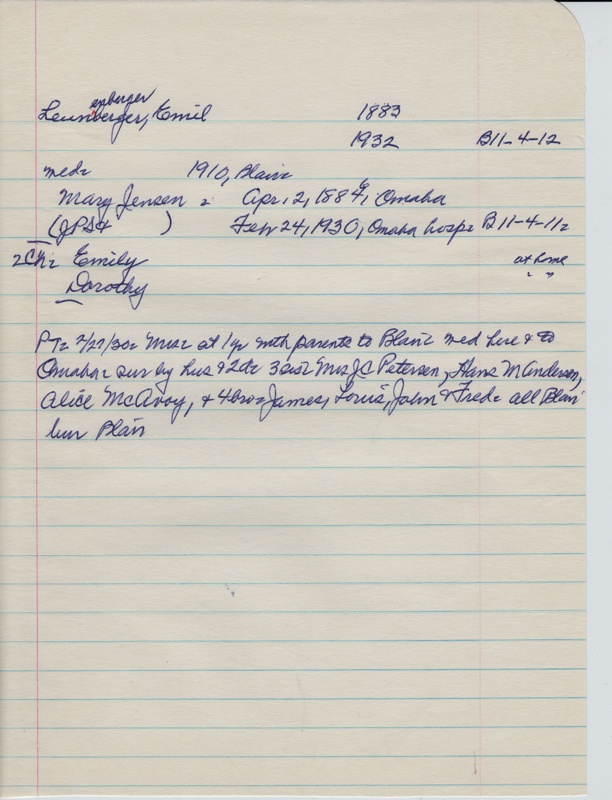 enberger
Leunberger, Emil 1883
1932 B11-4-12
med= 1910, Blair=
Mary Jensen = Apr. 2, 1884, Omaha
(JPS4 ) Feb 24, 1930, Omaha hosp= B11-4-11=
2Ch= Emily at home
Dorothy " "
PT= 2/27/30= Mrs= at 1yr with parents to Blair= med here & to
Omaha= sur by hus & 2ch= 3sist Mrs JC Petersen, Hans M Andersen,
Alice McAvoy, & 4bro= James, Louis, John & Fred= all Blair
bur Blair